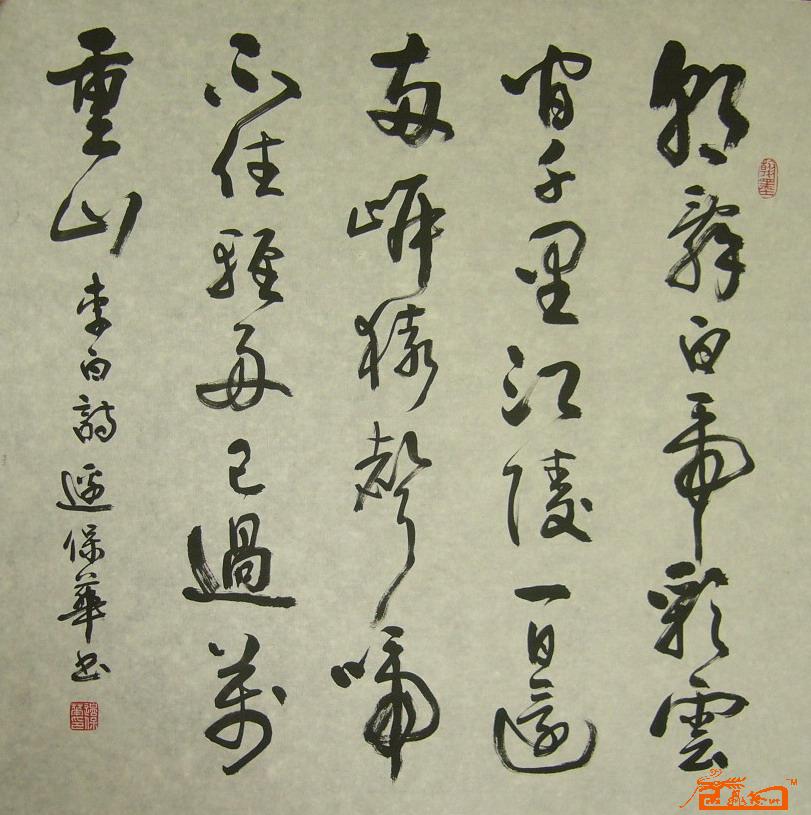 朝辭白帝彩雲
翰墨
間千里江陵一日還
兩岸猿聲啼
不住輕舟已過萬
重山
李白詩 保華书